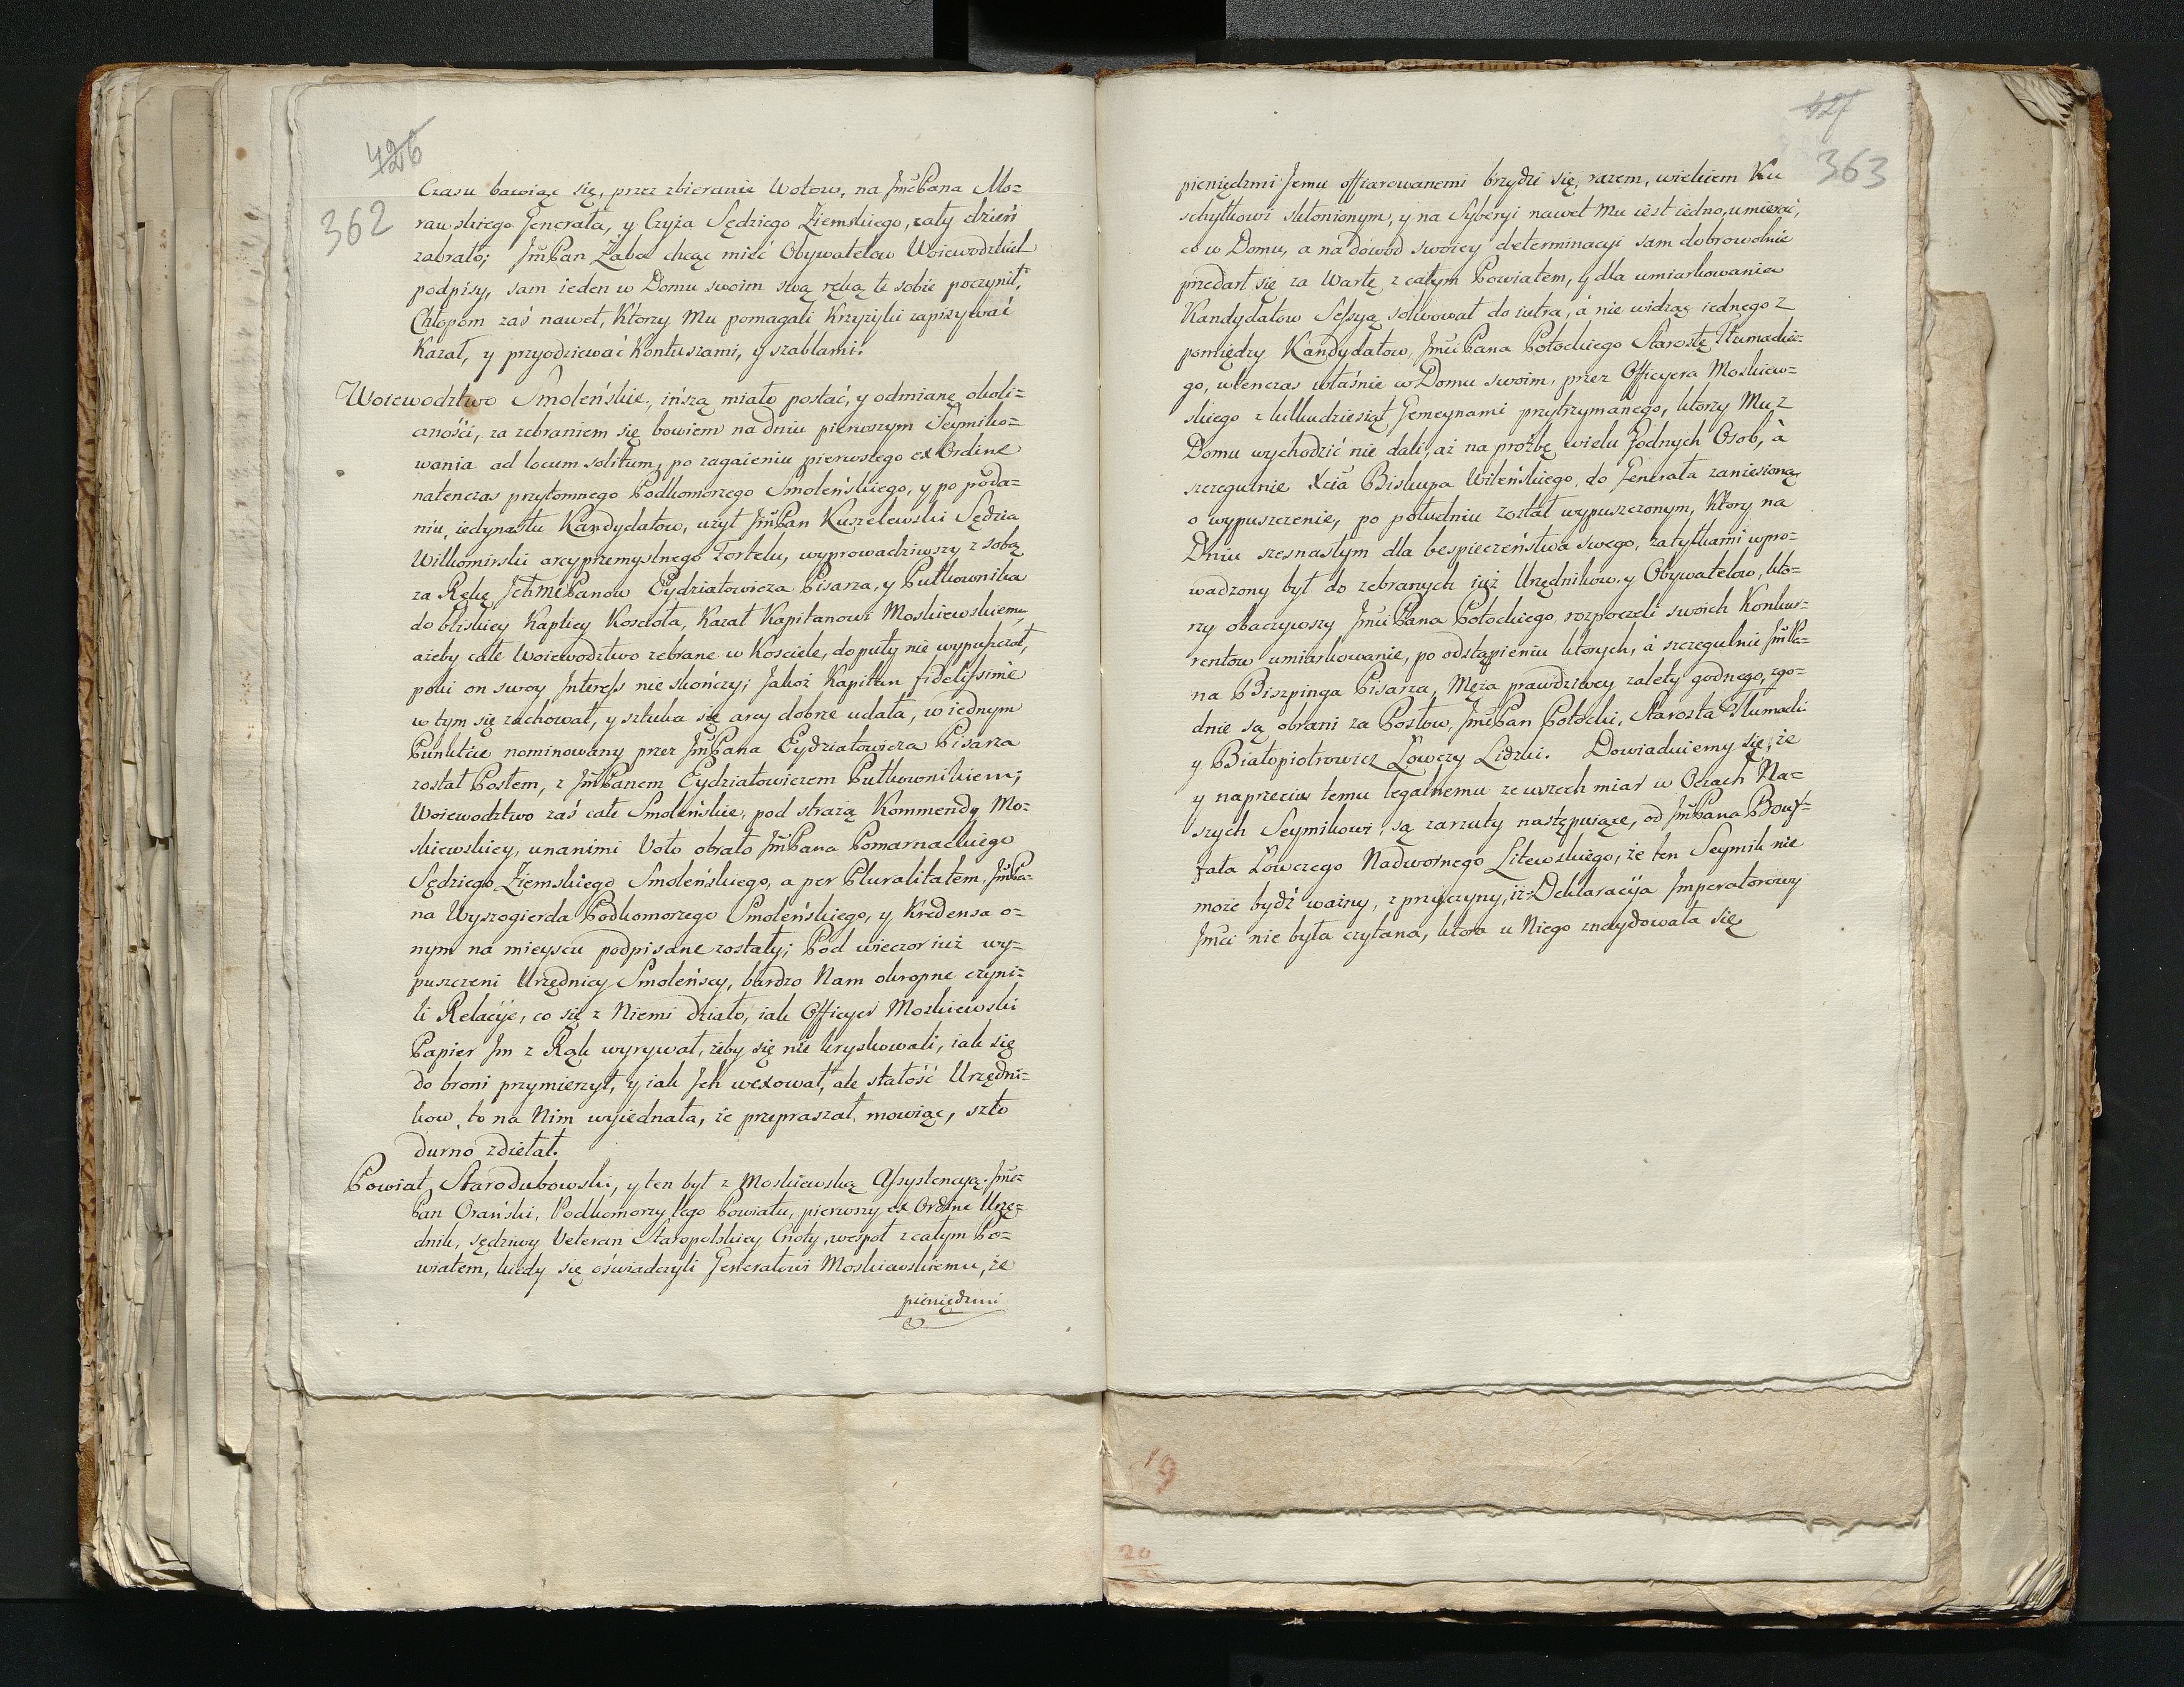 426
362
Czasu bawiąc się, przez zbieranie Wotow, na JmćPana Mo=
rawskiego Generała, y Czyża Sędziego Ziemskiego, cały dzień
zabrało; JmćPan Żaba chcąc mieć Obywatelow Woiewodzkich
podpisy, sam ieden w Domu swoim swą ręką te sobie poczynił,
Chłopom zaś nawet, Ktorzy Mu pomagali Krzyżyki zapisywać
Kazał, y przyodziewać Kontuszami, y szablami.
Woiewodztwo Smoleńskie, inszą miało postać, y odmianę okoli=
czności, za zebraniem się bowiem na dniu pierwszym Seymiko=
wania ad locum solitum, po zagaieniu pierwszego ex Ordine
natenczas przytomnego Podkomorzego Smoleńskiego, y po poda=
niu, iedynastu Kandydatow, użył JmćPan Kuszelewski Sędzia
Wilkomirski arcyprzemyslnego Fortelu, wyprowadziwszy z sobą
za Rękę JchMćPanow Eydziatowicza Pisarza, y Pułkownika
do bliskiey Kaplicy Koscioła, Kazał Kapitanowi Moskiewskiemu,
ażeby całe Woiewodztwo zebrane w Kosciele, do puty nie wypuszczał,
poki on swoy Interess nie skończy; Jakoż Kapitan fidelissimè
w tym się zachował, y sztuka się arcy dobrze udała, w iednym
Punkcie nominowany przez JmPana Eydziatowicza Pisarza
został Posłem, z JmPanem Eydziatowiczem Pułkownikiem;
Woiewodztwo zaś całe Smoleńskie, pod strażą Kommendy Mo=
skiewskiey, unanimi Voto obrało JmPana Pomarnackiego
Sędziego Ziemskiego Smoleńskiego, a per Pluralitatem, JmPa=
na Wyszogierda Podkomorzego Smoleńskiego, y Kredensa o=
nym na mieyscu podpisane zostały; Pod wieczor iuż wy=
puszczeni Urzędnicy Smoleńscy, bardzo Nam okropne czyni=
li Relacÿe, co się z Niemi działo, iak Officyer Moskiewski
Papier Jm z Rąk wyrywał, żeby się nie kryskowali, iak się
do broni przymierzył, y iak Jch wexował, ale stałość Urzędni=
kow, to na Nim wyiednała, że przepraszał, mowiąc, szto
durno zdiełał.
Powiat Starodubowski, y ten był z Moskiewską Assystencyą. Jmć=
Pan Orański, Podkomorzy tego Powiatu, pierwszy ex Ordine Urzę=
dnik, sędziwy Veteran Staropolskiey Cnoty, wespoł z całym Po=
wiatem, kiedy się oświadczyli Generałowi Moskiewskiemu, że
pieniędzmi
427
363
pieniędzmi Jemu offiarowanemi brzydzi się, razem, wiekiem Ku
schyłkowi skłonionym, y na Syberyi nawet Mu iest iedno, umierać,
co w Domu, a na dowod swoiey determinacyi sam dobrowolnie
przedarł się za Wartę, z całym Powiatem, y dla umiarkowania
Kandydatow Sessyą solwował do iutra, à nie widząc iednego z
pomiędzy Kandydatow, JmćiPana Potockiego Starostę Tłumackie=
go, wtenczas właśnie w Domu swoim, przez Officyera Moskiew=
skiego z kilkudziesiąt Gemeynami przytrzymanego, ktorzy Mu z
Domu wychodzić nie dali, aż na proźbę wielu Godnych Osob, à
szczegulnie Xcia Biskupa Wileńskiego, do Generała zaniesioną
o wypuszczenie, po południu został wypuszczonym, Ktory na
Dniu szesnastym dla bespieczeństwa swego, zatyłkami wpro=
wadzony był do zebranych iuż Urzędnikow y Obywatelow, kto=
rzy obaczywszy JmćiPana Potockiego, rozpoczeli swoich Konkur=
rentow umiarkowanie, po odstąpieniu ktorych, à szczegulnie JmPa=
na Biszpinga Pisarza, Męża prawdziwey zalety godnego, zgo=
dnie są obrani za Posłow, JmćPan Potocki, Starosta Tłumacki
y Białopiotrowicz Łowczy Lidzki. Dowiaduiemy się, że
y naprzeciw temu legalnemu ze wszech miar w Oczach Na=
szych Seymikowi, są zarzuty następuiące, od JmPana Bouf=
fała Łowczego Nadwornego Litewskiego, że ten Seymik nie
może bydź ważny, z przyczyny, iż Deklaracÿa Imperatorowy
Jmći nie była czytana, ktora u Niego znaydowała się
19
20